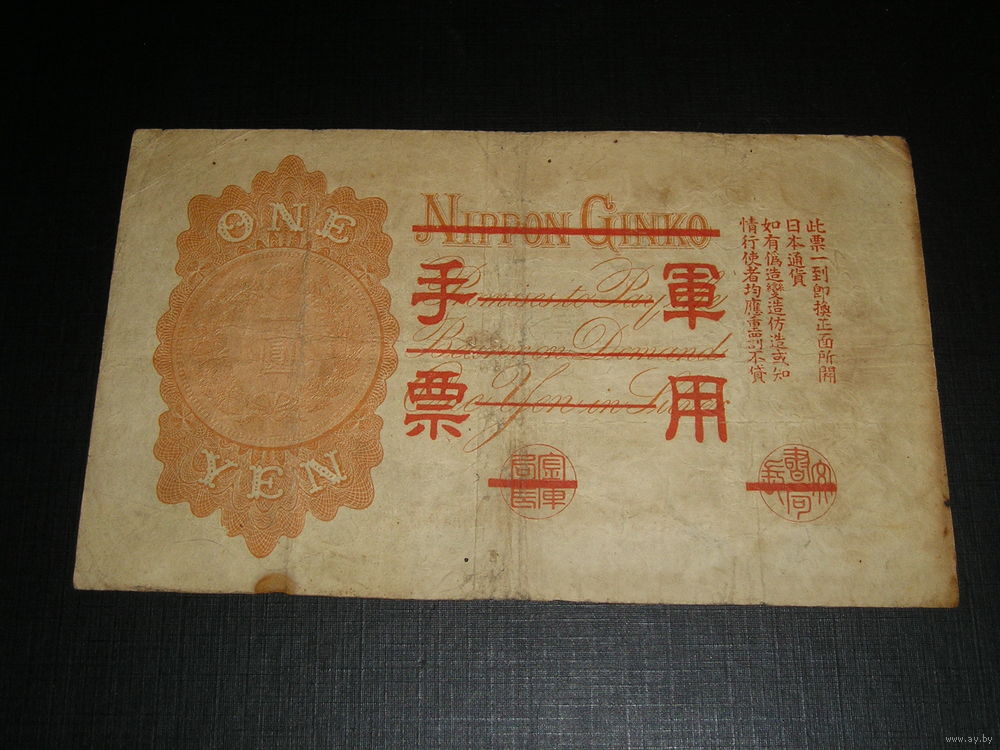 ONE
YEN
圓
NIPPON GINKO
Promises to Pay the
Bearer on Demand
One Yen in Silver
軍用
手票
此票一到即換正面所開
日本通貨
如有僞造變造仿造或知
情行使者均應重罰不貸
文書局長
www.ay.by